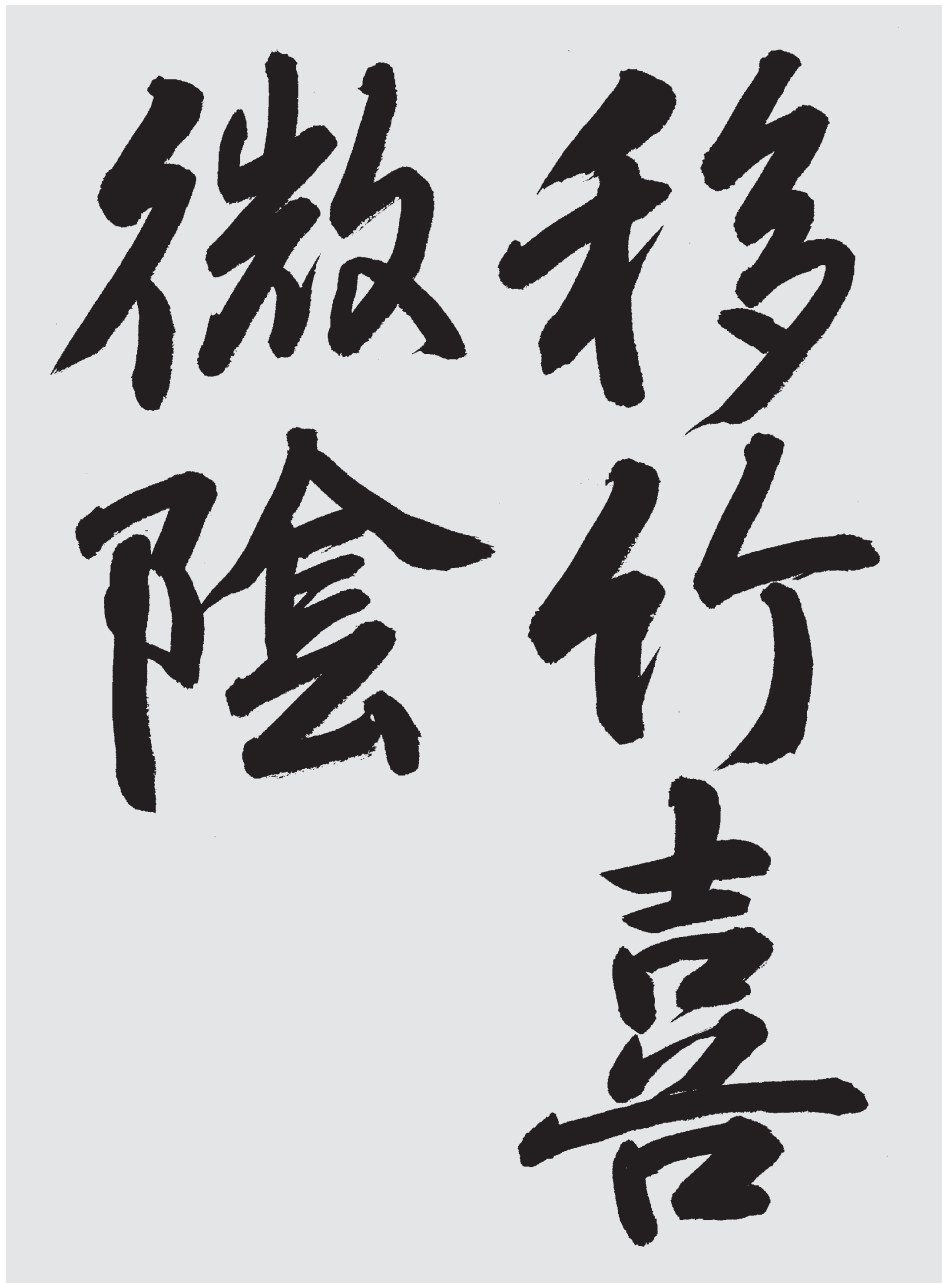 移竹喜
微陰